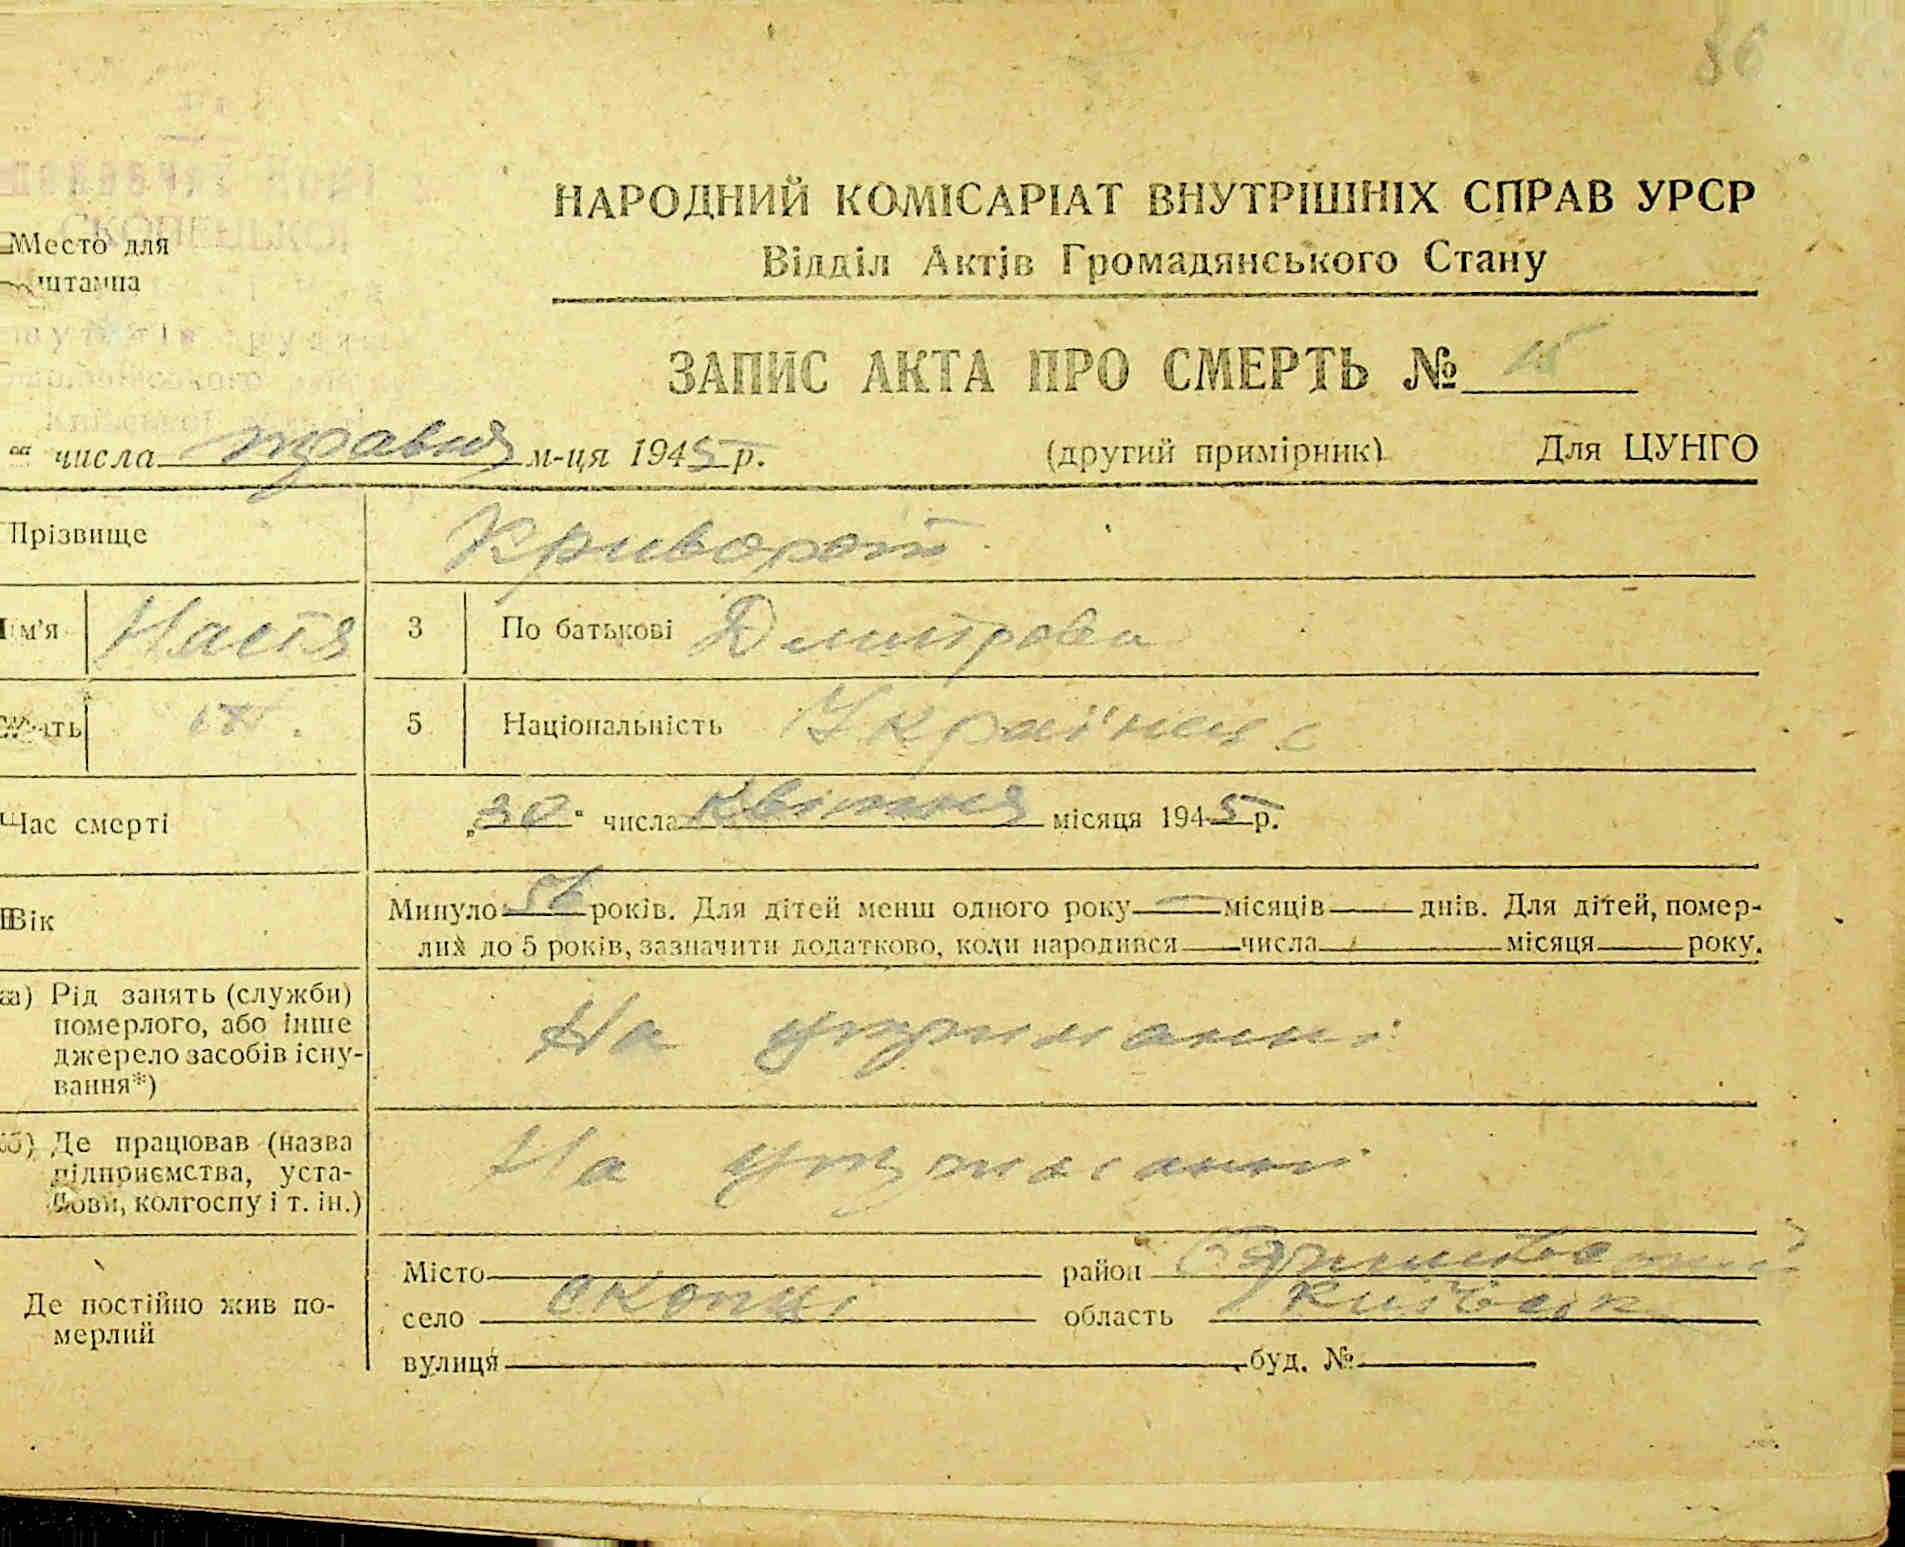 86
НАРОДНИЙ КОМІСАРІАТ ВНУТРІШНІХ СПРАВ УРСР
Відділ Актів Громадянського Стану
Место для
штампа
ЗАПИС АКТА ПРО СМЕРТЬ № 15
числа травня м-ця 1945 р. (другий примірник) Для ЦУНГО
Прізвище Криворот
Ім'я Настя 3 По батькові Дмитровна
5 Національність Українка
Час смерті „30" числа квітня місяця 1945 р.
Вік Минуло 56 років. Для дітей менш одного року — місяців днів. Для дітей, помер-
лих до 5 років, зазначити додатково, коли народився числа місяця року.
а) Рід занять (служби)
померлого, або інше
джерело засобів існу-
вання*)
На утриманні
б) Де працював (назва
підприємства, уста-
нови, колгоспу і т. ін.)
На утриманні
Де постійно жив по-
мерлий
Місто район
село Скопці область Київськ
вулиця буд. №